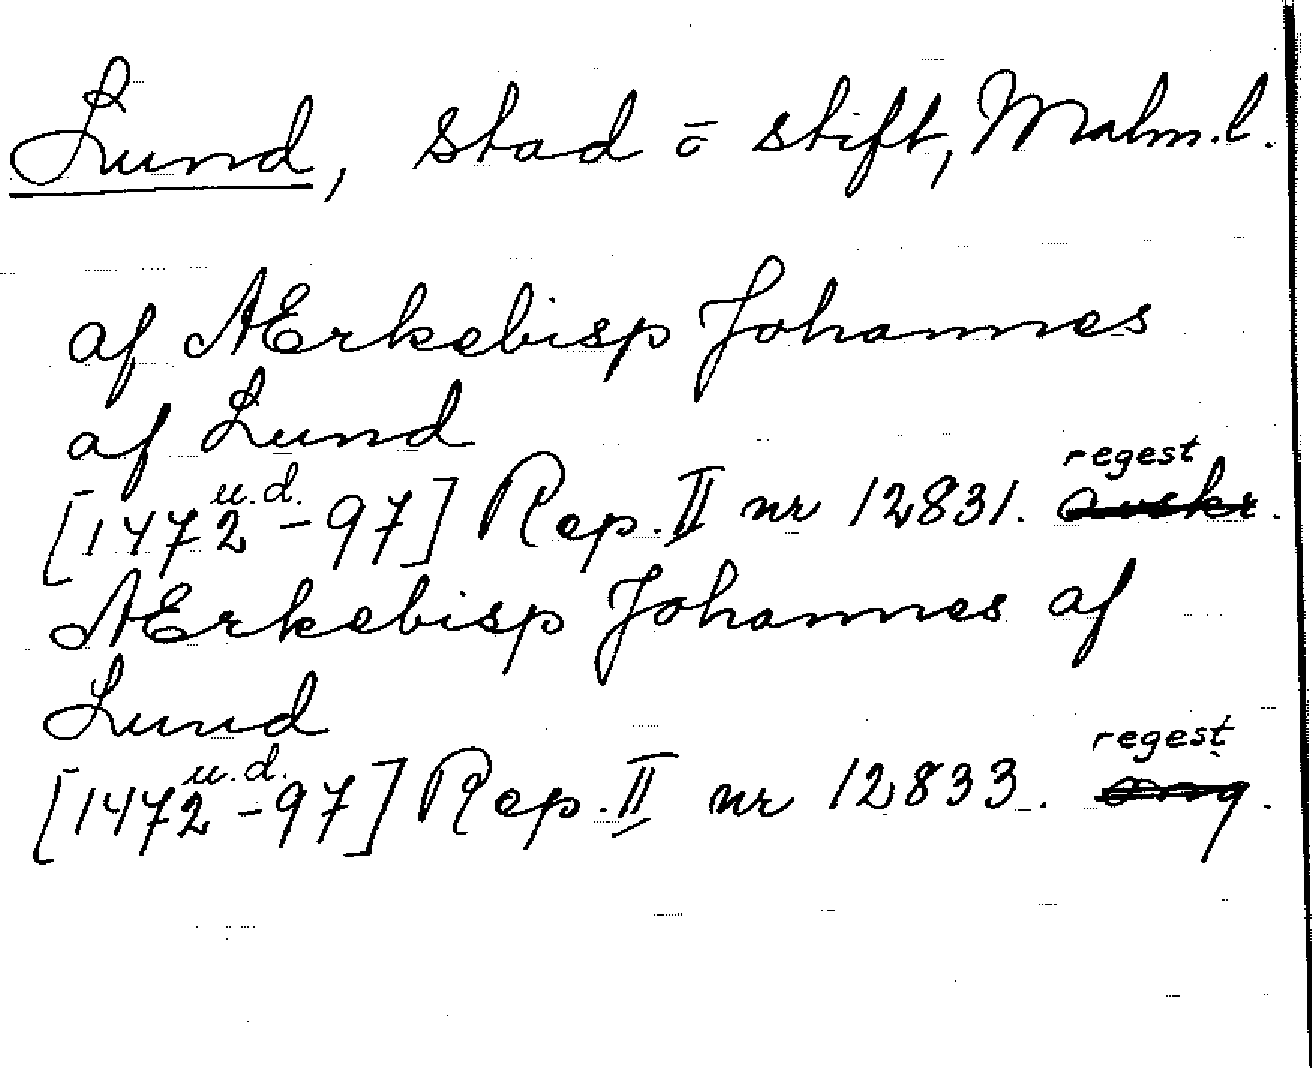 Lund, stad ō stift, Malm.l.
af AErkebisp Johannes
af Lund
u.d. regest
[1472-97] Rep. II nr 12831. avskr.
AErkebisp Johannes af
Lund
u.d. regest
[1472-97] Rep. II nr 12833.